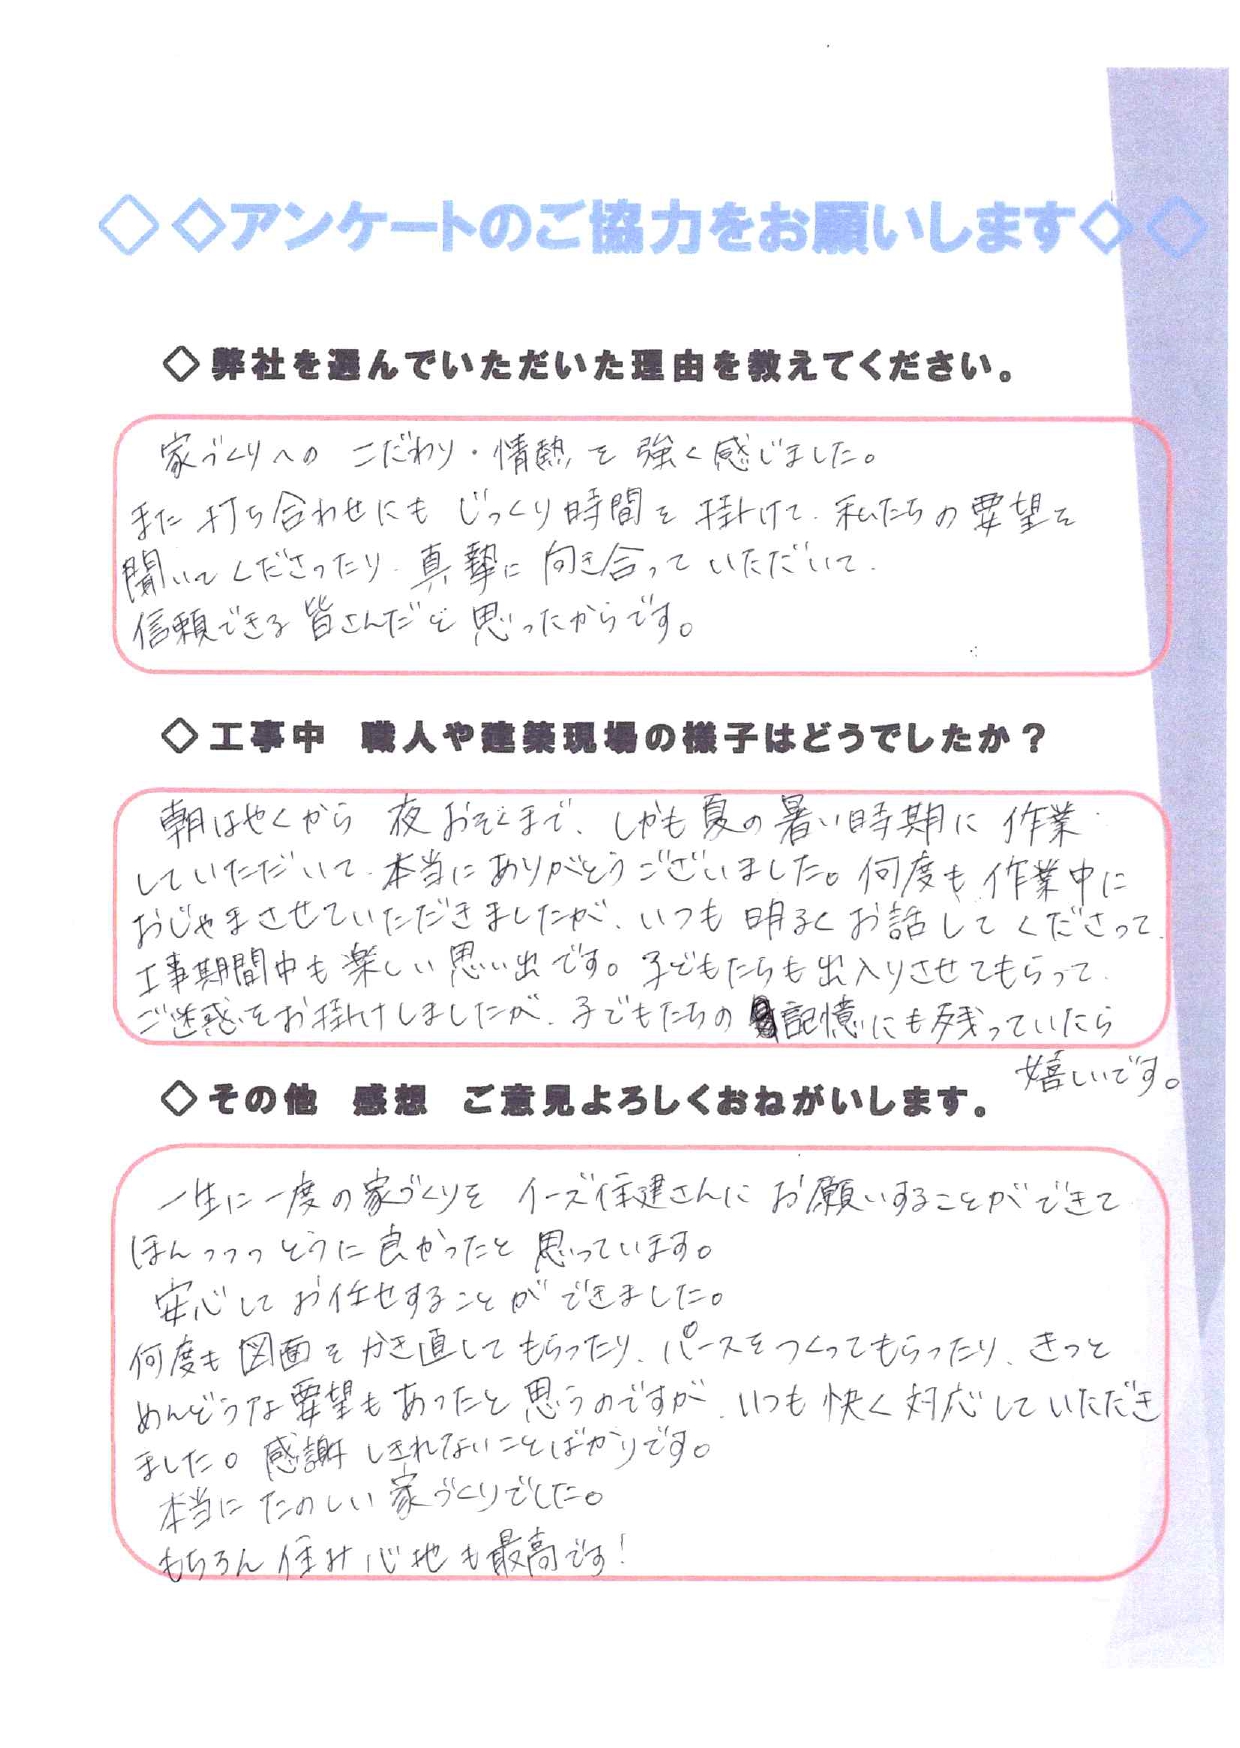 ◇◇アンケートのご協力をお願いします◇◇
◇弊社を選んでいただいた理由を教えてください。
家づくりへの こだわり・情熱を強く感じました。
また打ち合わせにも じっくり時間を掛けて、私たちの要望を
聞いてくださったり、真摯に向き合っていただいて、
信頼できる皆さんだと思ったからです。
◇工事中 職人や建築現場の様子はどうでしたか?
朝はやくから 夜おそくまで、しかも夏の暑い時期に 作業
していただいて、本当にありがとうございました。何度も、作業中に
おじゃまさせていただきましたが、いつも明るくお話してくださって、
工事期間中も楽しい思い出です。子どもたちも出入りさせてもらって、
ご迷惑をお掛けしましたが、子どもたちの記憶にも残っていたら
嬉しいです。
◇その他 感想 ご意見よろしくおねがいします。
一生に一度の家づくりを イーズ住建さんに お願いすることができて
ほんっっっとうに良かったと思っています。
安心してお任せすることができました。
何度も図面をかき直してもらったり、パースをつくってもらったり、きっと
めんどうな要望もあったと思うのですが、いつも快く対応していただき
ました。感謝しきれないことばかりです。
本当にたのしい家づくりでした。
もちろん住み心地も最高です!